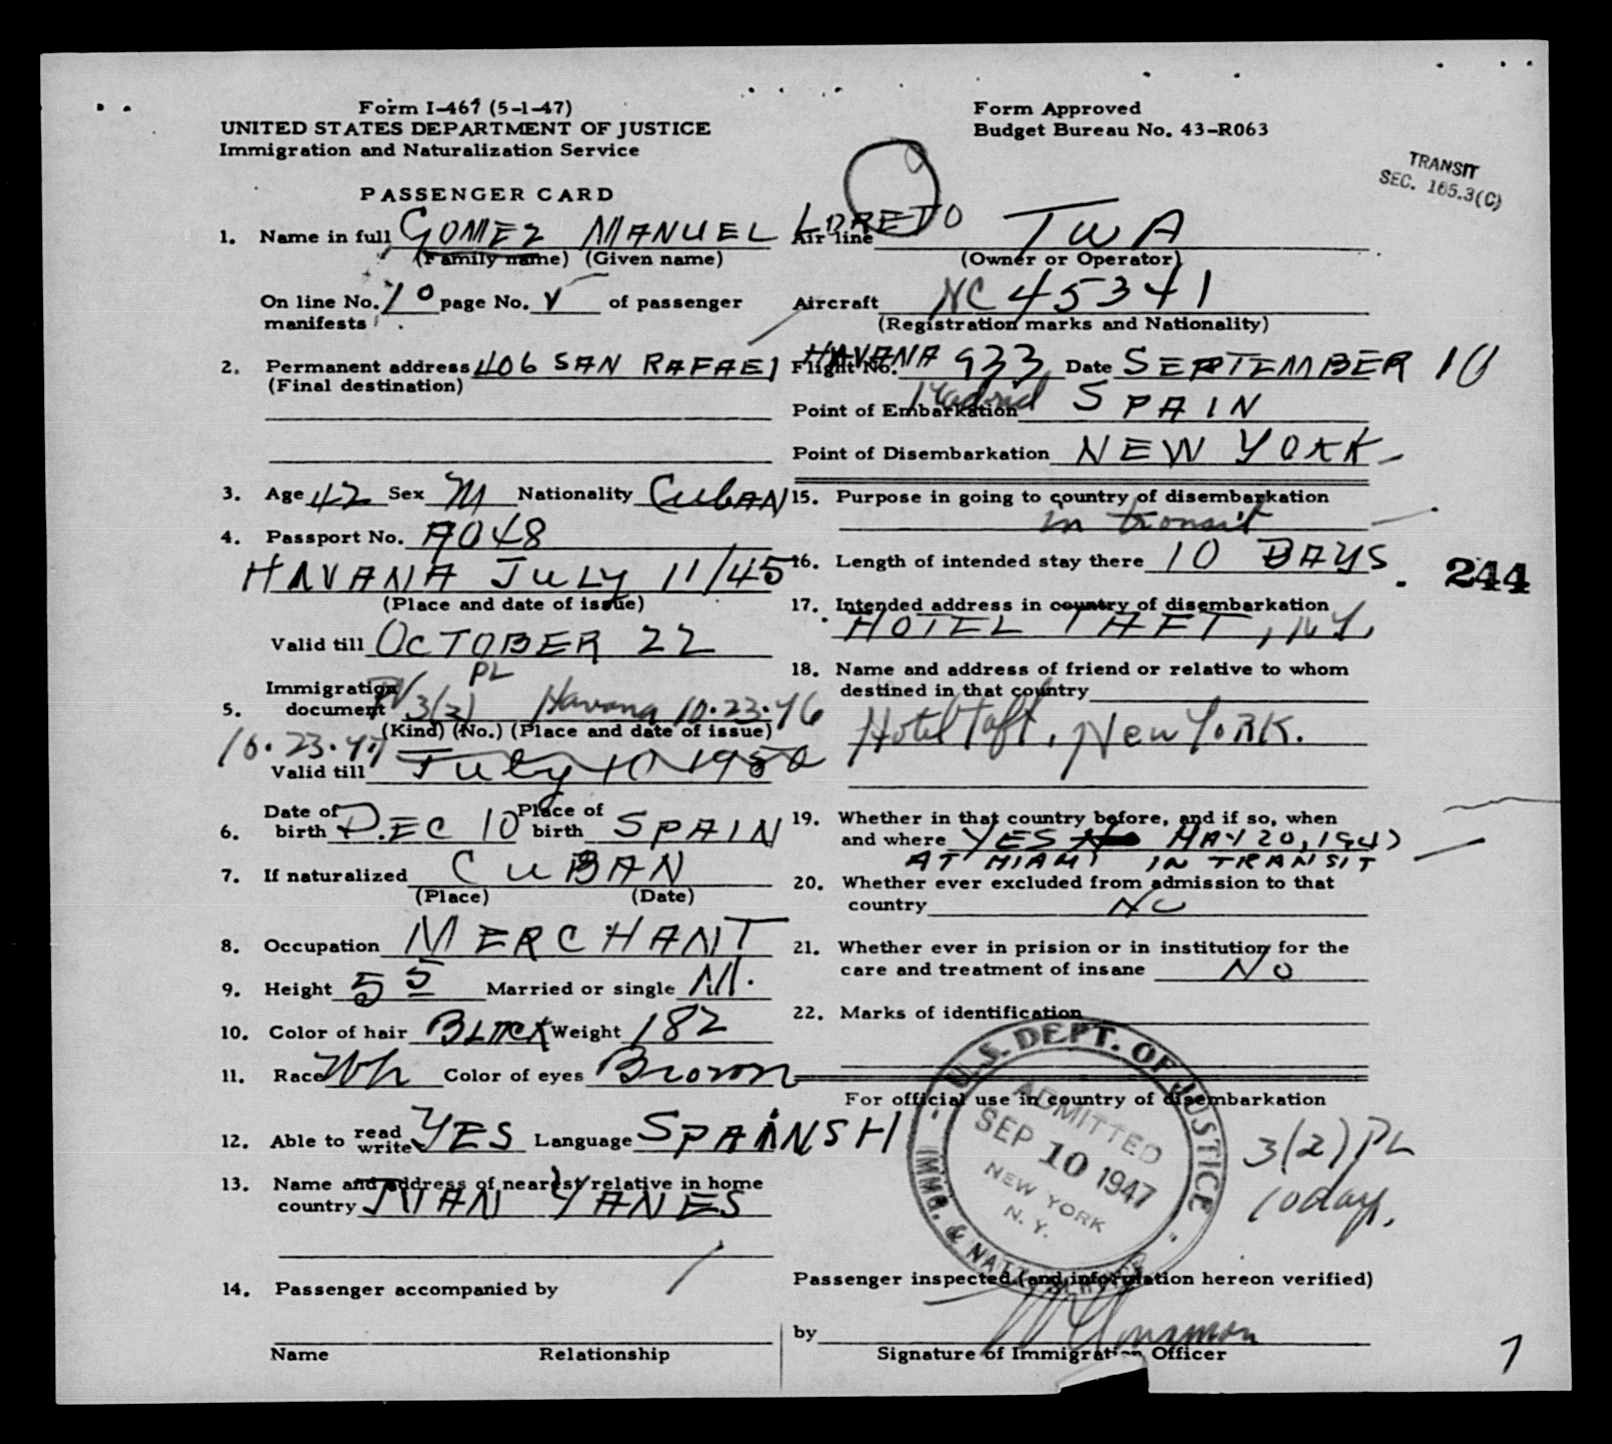 Form I-467 (5-1-47)
UNITED STATES DEPARTMENT OF JUSTICE
Immigration and Naturalization Service
Form Approved
Budget Bureau No. 43-R063
TRANSIT
SEC. 165.3(C)
PASSENGER CARD
1. Name in full GOMEZ MANUEL LORETO
(Family name) (Given name)
On line No. 10 page No. V of passenger
manifests
2. Permanent address 406 SAN RAFAEl HAVANA
(Final destination)
3. Age 42 Sex M Nationality CUbAN
4. Passport No. 9048
HAVANA JULY 11/45
(Place and date of issue)
Valid till OCTOBER 22
PL
Immigration
5. document PV 3(2) Havana 10.23.46
(Kind) (No.) (Place and date of issue)
10.23.47
Valid till July 10 1950
6. Date of birth DEC 10 Place of birth SPAIN
7. If naturalized CUBAN
(Place) (Date)
8. Occupation MERCHANT
9. Height 5 5 Married or single M.
10. Color of hair BLACK Weight 182
11. Race Wh Color of eyes Brown
12. Able to read write YES Language SPAINSH
13. Name and address of nearest relative in home
country JUAN YANES
14. Passenger accompanied by
Name Relationship
Air line TWA
(Owner or Operator)
Aircraft NC 45341
(Registration marks and Nationality)
Flight No. 933 Date SEPTEMBER 10
Point of Embarkation Madrid SPAIN
Point of Disembarkation NEW YORK
15. Purpose in going to country of disembarkation
in transit
16. Length of intended stay there 10 DAYS.
244
17. Intended address in country of disembarkation
HOTEL TAFT, N.Y.
18. Name and address of friend or relative to whom
destined in that country
Hotel Taft, New YoRK.
19. Whether in that country before, and if so, when
and where YES MAY 20, 1947
AT MIAMI IN TRANSIT
20. Whether ever excluded from admission to that
country NO
21. Whether ever in prision or in institution for the
care and treatment of insane NO
22. Marks of identification
For official use in country of disembarkation
U.S. DEPT. OF JUSTICE
IMMG. & NATZ. SERVICE
ADMITTED
SEP 10 1947
NEW YORK
N. Y.
3(2) PL
10 days.
Passenger inspected (and information hereon verified)
by
Signature of Immigration Officer
7